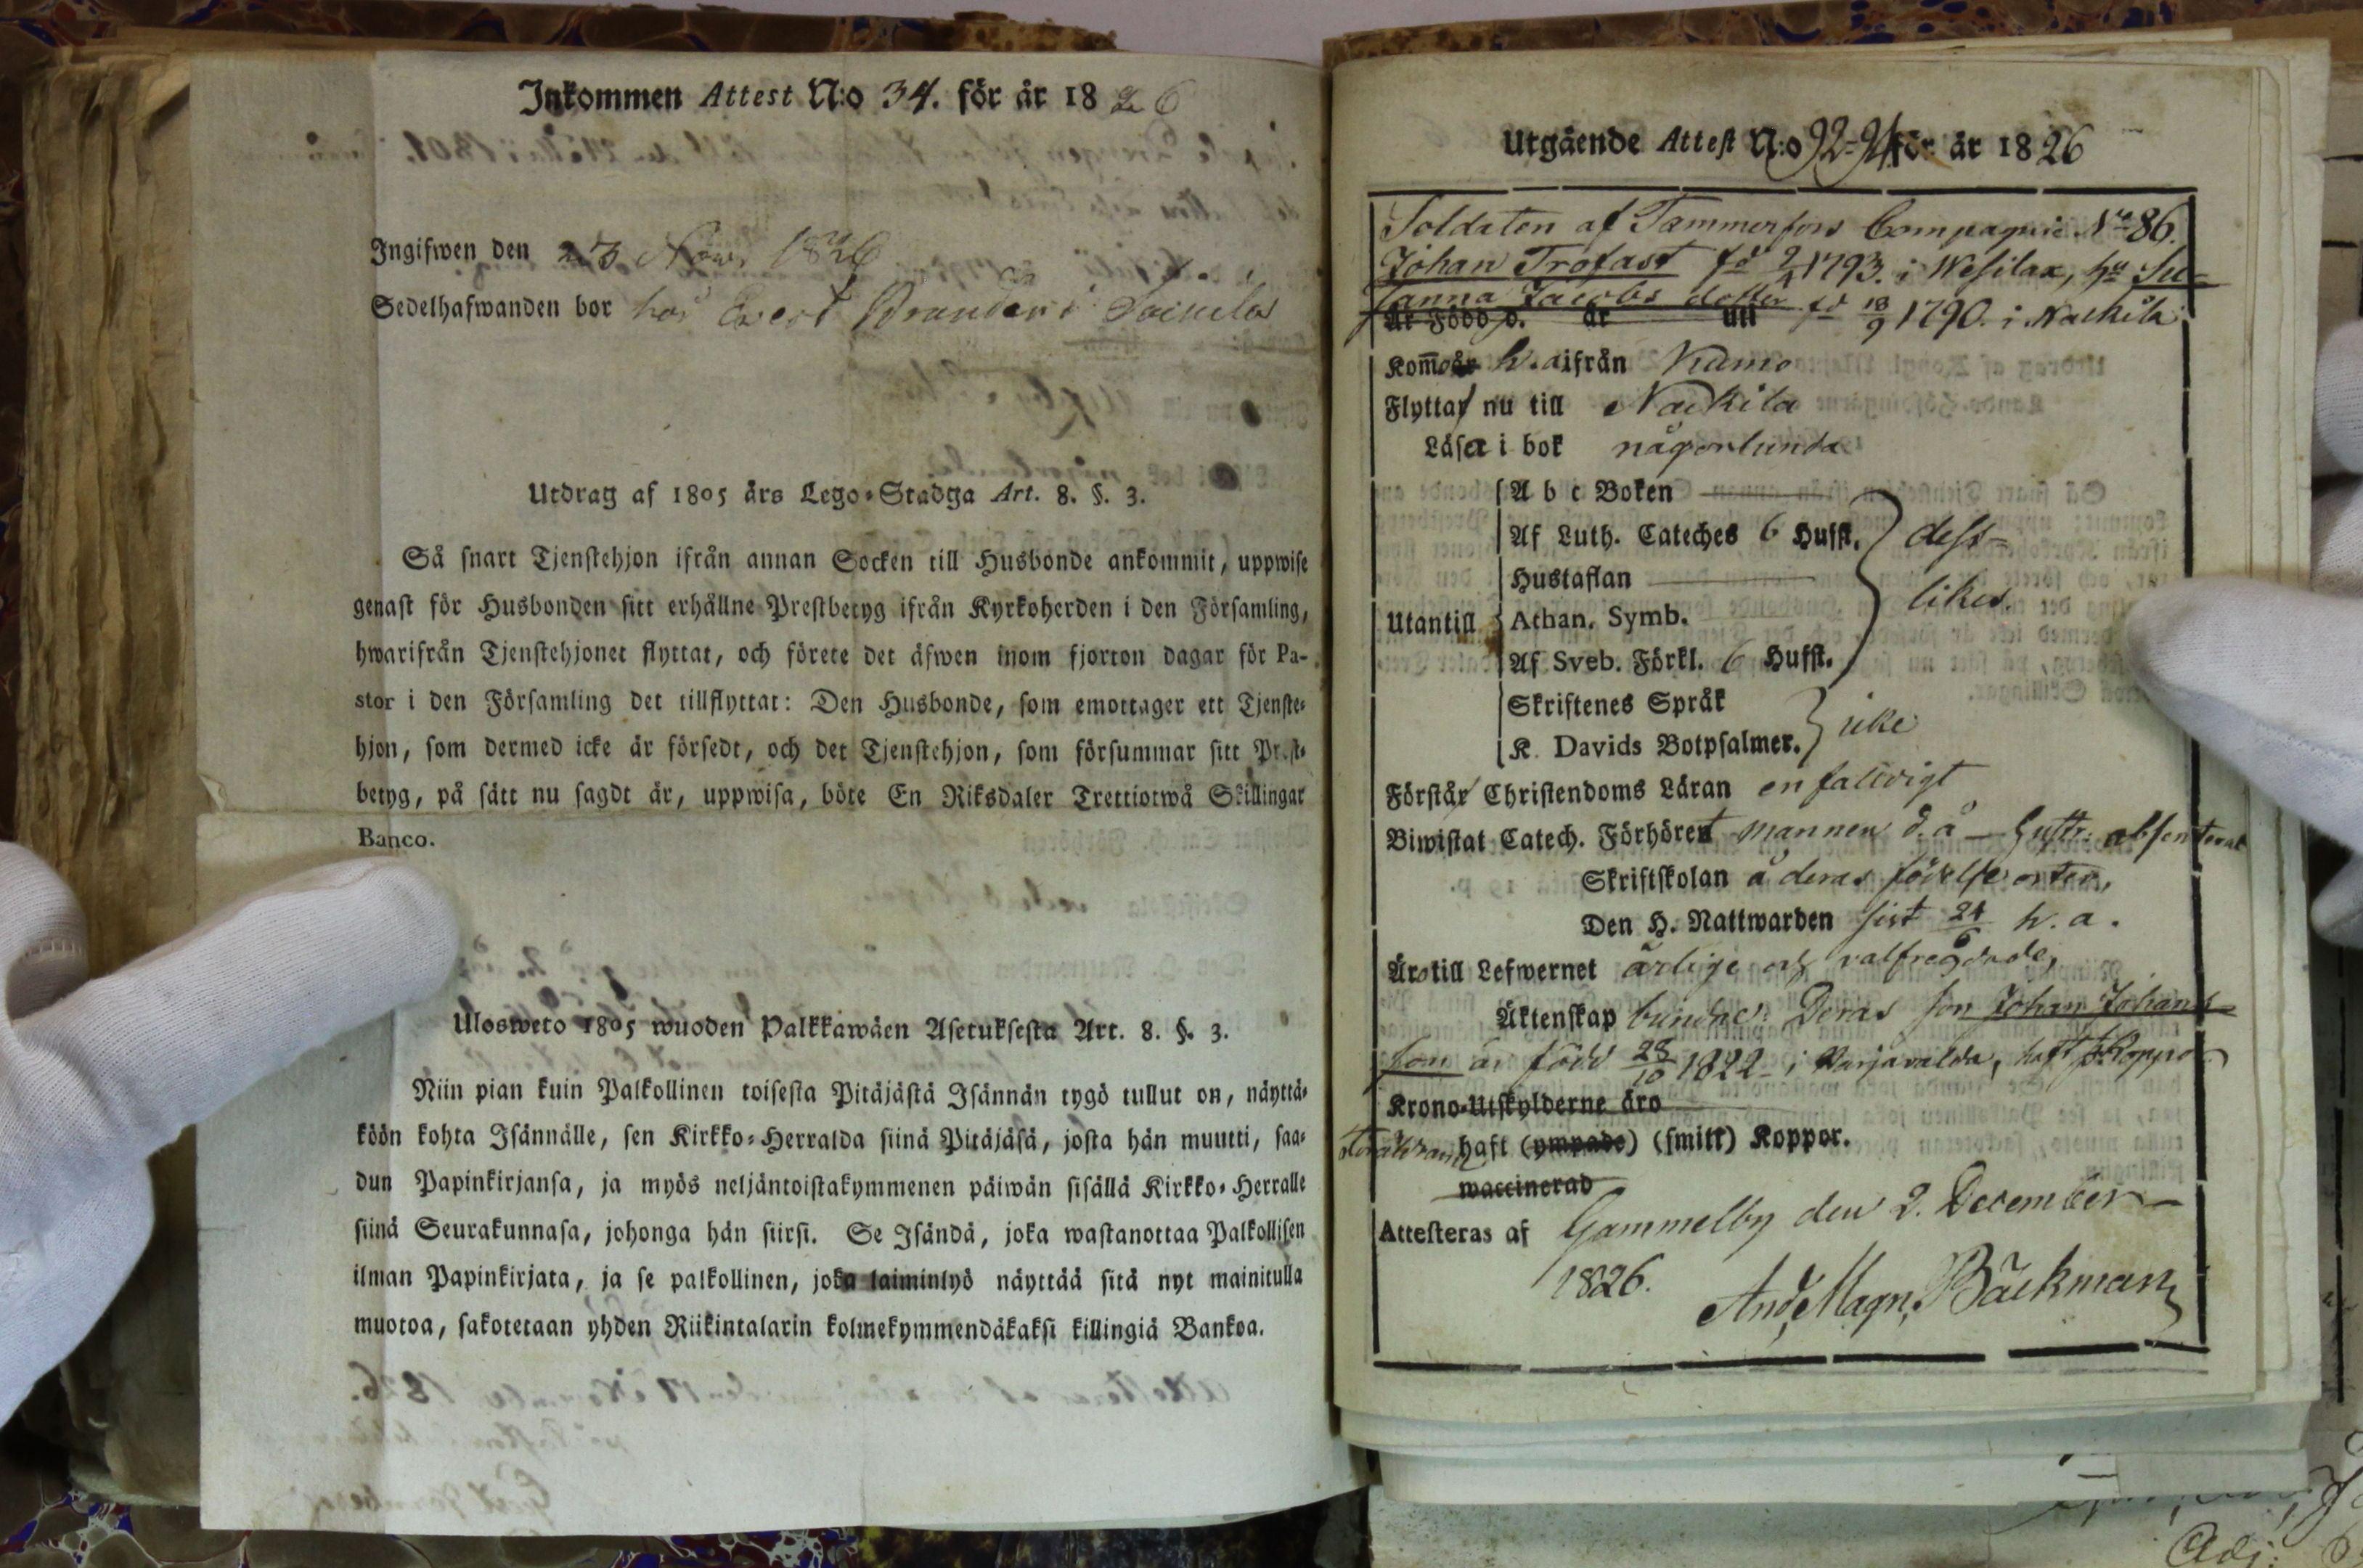 Inkommen Attest N:o 34. för år 1826
Ingifwen den 23 Nov. 1826
Sedelhafwanden bor hos Evert Brander i Soinila
Utdrag af 1805 års Lego-Stadga Art. 8. §. 3.
Så snart Tjenstehjon ifrån annan Socken till Husbonde ankommit, uppwise
genast för Husbonden sitt erhållne Prestbetyg ifrån Kyrkoherden i den Församling,
hwarifrån Tjenstehjonet flyttat, och förete det äfwen inom fjorton dagar för Pa-
stor i den Församling det tillflyttat: Den Husbonde, som emottager ett Tjenste-
hjon, som dermed icke är försedt, och det Tjenstehjon, som försummar sitt Prest-
betyg, på sätt nu sagdt är, uppwisa, böte En Riksdaler Trettiotwå Skillingar
Banco.
Ulosweto 1805 wuoden Palkkawäen Asetuksesta Art. 8. §. 3.
Niin pian kuin Palkollinen toisesta Pitäjästä Isännän tygö tullut on, näyttä-
köön kohta Isännälle, sen Kirkko-Herralda siinä Pitäjäsä, josta hän muutti, saa-
dun Papinkirjansa, ja myös neljäntoistakymmenen päiwän sisällä Kirkko-Herralle
siinä Seurakunnasa, johonga hän siirsi. Se Isändä, joka wastanottaa Palkollisen
ilman Papinkirjata, ja se palkollinen, joka laiminlyö näyttää sitä nyt mainitulla
muotoa, sakotetaan yhden Riikintalarin kolmekymmendäkaksi killingiä Bankoa.
Utgående Attest N:o 92-94 för år 1826
Soldaten af Tammerfors Compagnie No 86.
Johan Trofast fö 2/4 1793. i Wesilax, hu Su-
sanna Jacobs dotter fö 18/9 1790. i Nackila
Är Född d. år uti
Kom̄o h. a. ifrån Kumo
Flytta nu till Nackila
Läsa i bok någorlunda
A b c Boken
Af Luth. Cateches 6 Hufst. dess-
Hustaflan
likes.
Utantill Athan. Symb.
Af Sveb. Förkl. 6 Hufst.
Skriftenes Språk
icke
K. Davids Botpsalmer.
Förstår Christendoms Läran enfaldigt
Biwistat Catech. Förhöret mannen d. å - hustr. absenterat
Skriftskolan å deras födelse orter,
Den H. Nattwarden sist 24/6 h. a.
Äro till Lefwernet ärlige och välfrägdade,
Äktenskap bundne. Deras son Johan Johans-
son är född 28/10 1822 i Harjavalda, haft s. Koppor
Krono-Utskylderne äro
Föräldrarne haft (ympade) (smitt) Koppor.
waccinerad
Attesteras af Gammelby den 2. December
1826. And. Magn. Bäckman